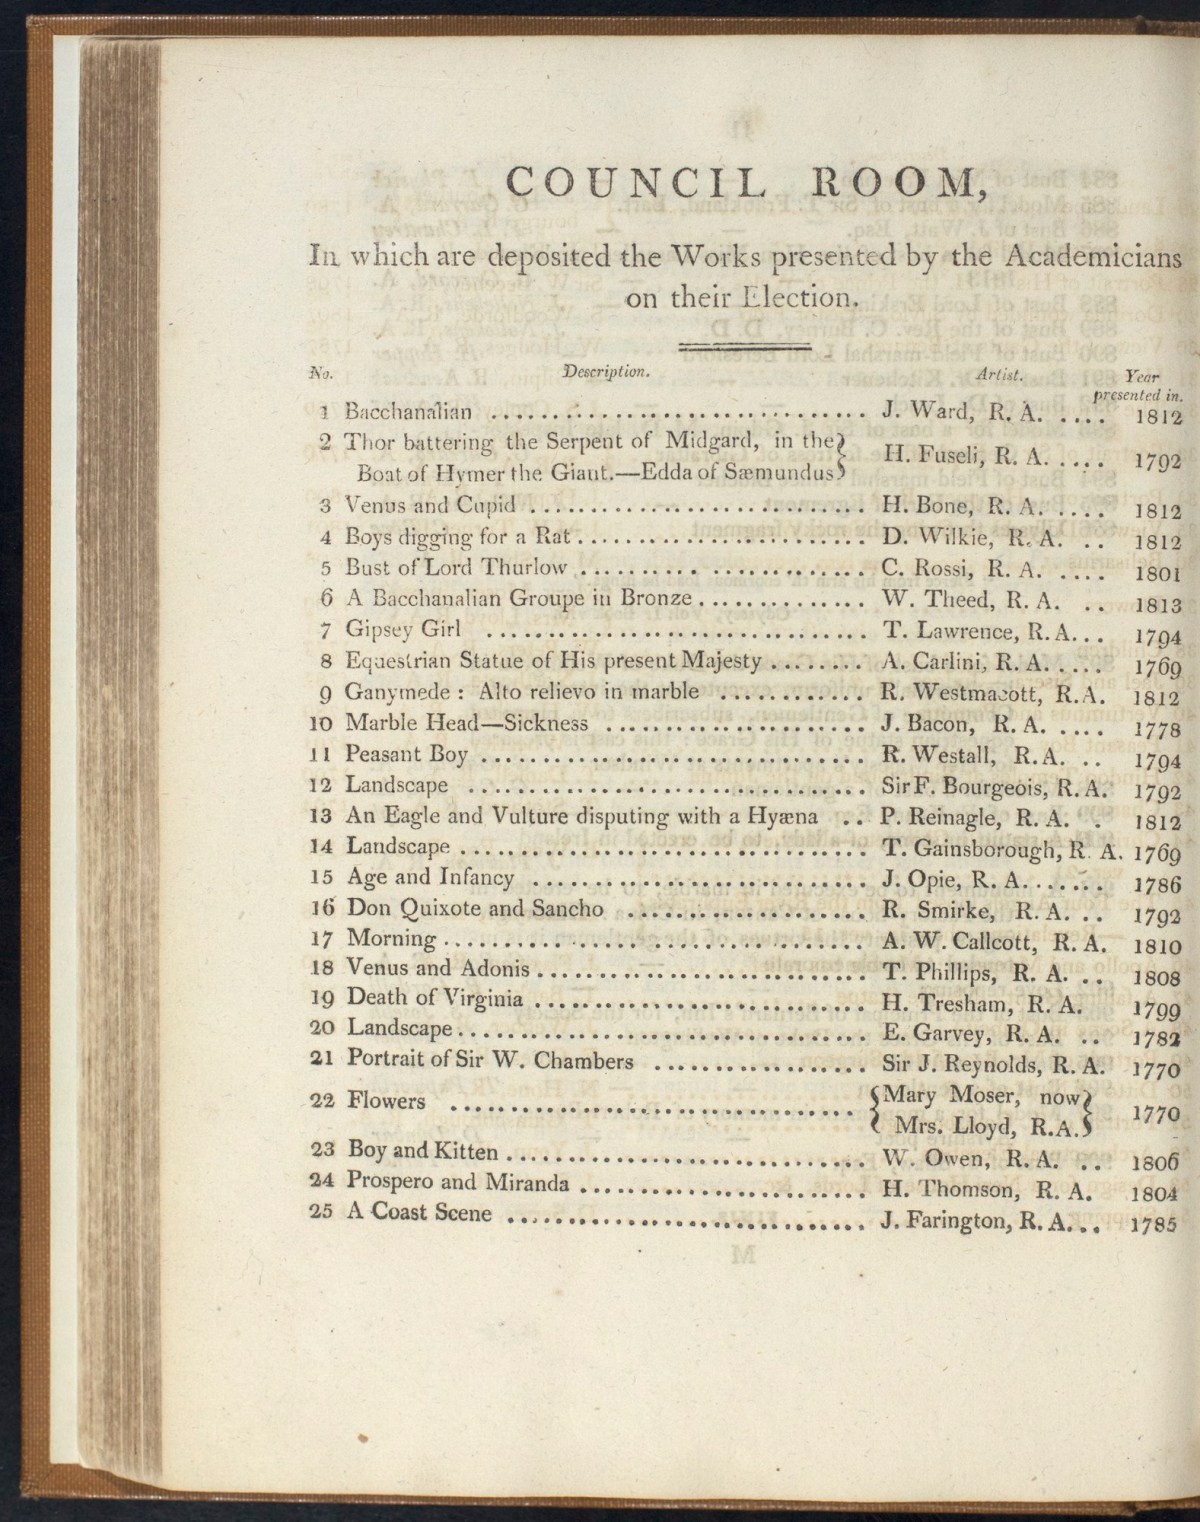 COUNCIL ROOM,
In which are deposited the Works presented by the Academicians
on their Election.
No. Description. Artist. Year
presented in.
1 Bacchanalian ................................ J. Ward, R. A. .... 1812
2 Thor battering the Serpent of Midgard, in the
Boat of Hymer the Giant.—Edda of Sæmundus } H. Fuseli, R. A. ..... 1792
3 Venus and Cupid ............................ H. Bone, R. A. .... 1812
4 Boys digging for a Rat ........................ D. Wilkie, R. A. .. 1812
5 Bust of Lord Thurlow ....................... C. Rossi, R. A. .... 1801
6 A Bacchanalian Groupe in Bronze .............. W. Theed, R. A. .. 1813
7 Gipsey Girl ................................ T. Lawrence, R. A. .. 1794
8 Equestrian Statue of His present Majesty ........ A. Carlini, R. A. .... 1769
9 Ganymede : Alto relievo in marble ............ R. Westmacott, R. A. 1812
10 Marble Head—Sickness ...................... J. Bacon, R. A. .... 1778
11 Peasant Boy ................................ R. Westall, R. A. .. 1794
12 Landscape ................................. Sir F. Bourgeois, R. A. 1792
13 An Eagle and Vulture disputing with a Hyæna .. P. Reinagle, R. A. . 1812
14 Landscape .................................. T. Gainsborough, R. A. 1769
15 Age and Infancy ............................ J. Opie, R. A. ...... 1786
16 Don Quixote and Sancho .................... R. Smirke, R. A. .. 1792
17 Morning ................................... A. W. Callcott, R. A. 1810
18 Venus and Adonis ........................... T. Phillips, R. A. .. 1808
19 Death of Virginia ............................ H. Tresham, R. A. 1799
20 Landscape .................................. E. Garvey, R. A. .. 1782
21 Portrait of Sir W. Chambers .................. Sir J. Reynolds, R. A. 1770
22 Flowers .................................. { Mary Moser, now
Mrs. Lloyd, R. A. } 1770
23 Boy and Kitten .............................. W. Owen, R. A. .. 1806
24 Prospero and Miranda ........................ H. Thomson, R. A. 1804
25 A Coast Scene .............................. J. Farington, R. A. .. 1785